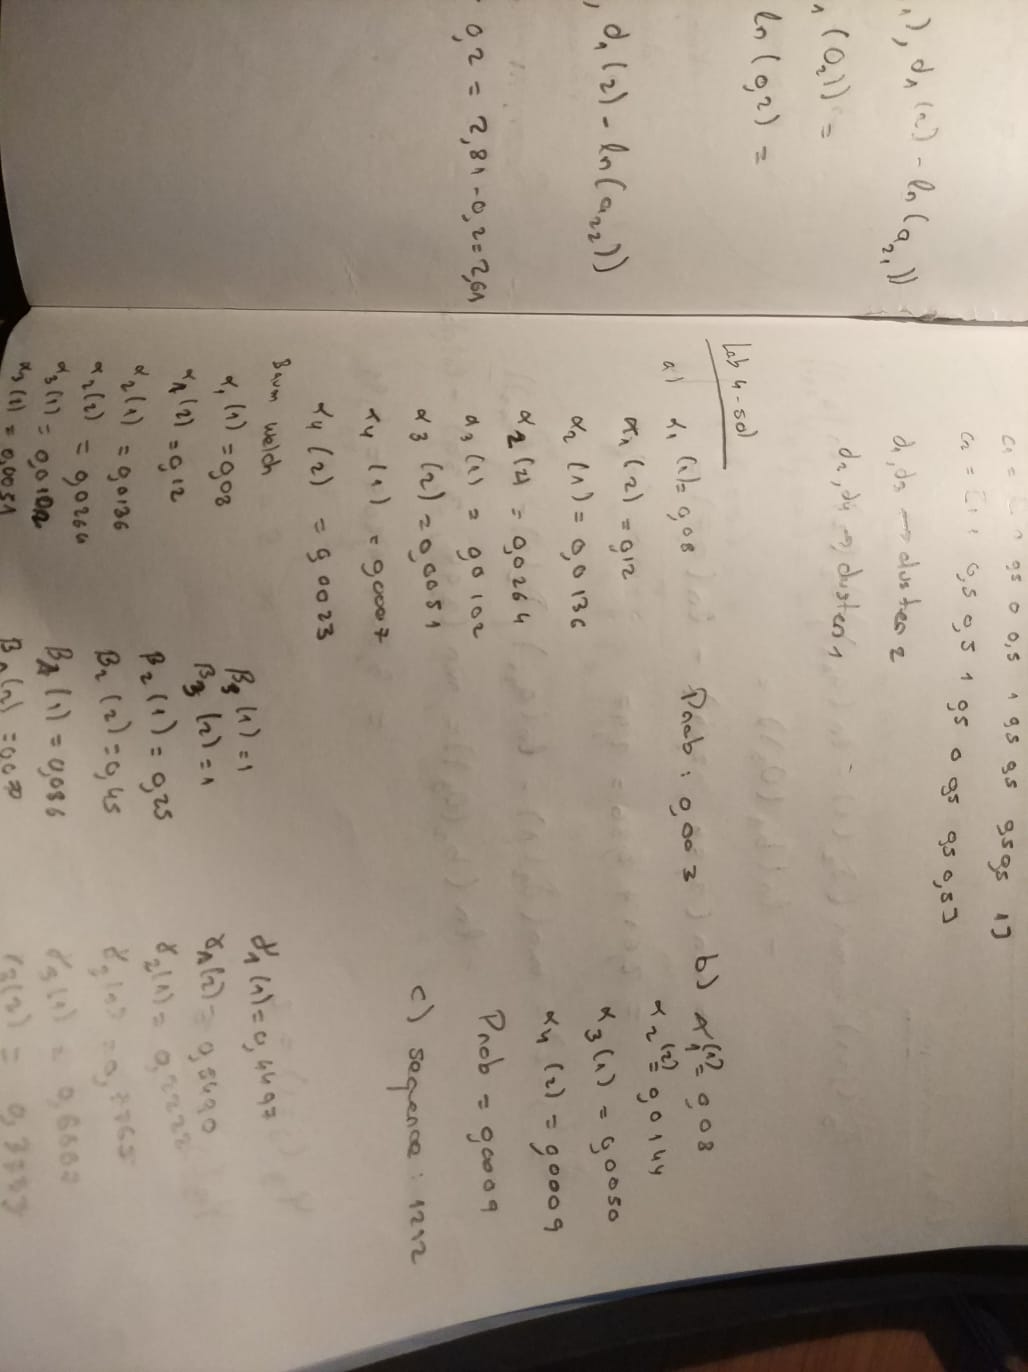 ), d₁(2) - ln(a₂₁))
(0,1)) =
ln(0,2) =
, d₁(2) - ln(a₂₂))
0,2 = 2,81 - 0,2 = 2,61
0,5 0 0,5 1 0,5 0,5 0,5 0,5 1]
C₂ = [1 0,5 0,5 1 0,5 0 0,5 0,5 0,5]
d₁, d₃ → cluster 2
d₂, d₄ → cluster 1
Lab 4 - sol
a) α₁(1) = 0,08
α₁(2) = 0,12
α₂(1) = 0,0136
α₂(2) = 0,0264
α₃(1) = 0,0102
α₃(2) = 0,0051
α₄(1) = 0,0007
α₄(2) = 0,0023
Prob: 0,003
b) α₁(1) = 0,08
α₂(2) = 0,0144
α₃(1) = 0,0050
α₄(2) = 0,0009
Prob = 0,0009
c) sequence: 1212
Baum Welch
α₁(1) = 0,08
α₁(2) = 0,12
α₂(1) = 0,0136
α₂(2) = 0,0264
α₃(1) = 0,0102
α₃(2) = 0,0051
β₃(1) = 1
β₃(2) = 1
β₂(1) = 0,25
β₂(2) = 0,45
β₁(1) = 0,086
β₁(2) = 0,07
γ₁(1) = 0,4497
γ₁(2) = 0,5490
γ₂(1) = 0,2222
γ₂(2) = 0,7765
γ₃(1) = 0,6667
γ₃(2) =